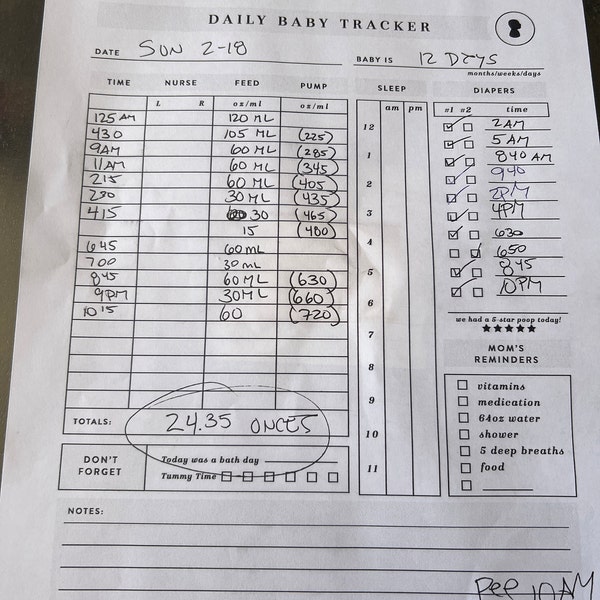 DAILY BABY TRACKER
DATE SUN 2-18 BABY IS 12 DAYS
months/weeks/days
TIME NURSE FEED PUMP SLEEP DIAPERS
L R oz/ml oz/ml am pm #1 #2 time
125 AM 120 ML 2AM
430 105 ML (225) 12 5AM
9AM 60 ML (285) 840 AM
11AM 60 ML (345) 1 940
215 60 ML (405) 2 2PM
230 30 ML (435) 4PM
415 30 (465) 3 630
15 (480) 650
645 60 ML 4 845
700 30 ML 10PM
845 60 ML (630) 5
9PM 30 ML (660) 6
1015 60 (720)
we had a 5-star poop today!
★★★★★
7
MOM'S
REMINDERS
8
vitamins
medication
9
64oz water
TOTALS: 24.35 ONCES
10
shower
DON'T
FORGET
Today was a bath day
5 deep breaths
Tummy Time
11
food
NOTES:
Pee 10 AM